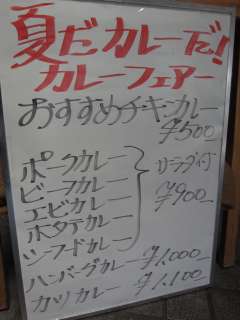 夏だカレーだ!
カレーフェアー
おすすめチキンカレー
¥500
ポークカレー
ビーフカレー
エビカレー
ホタテカレー
シーフードカレー
サラダ付
¥900
ハンバーグカレー ¥1,000
カツカレー ¥1,100